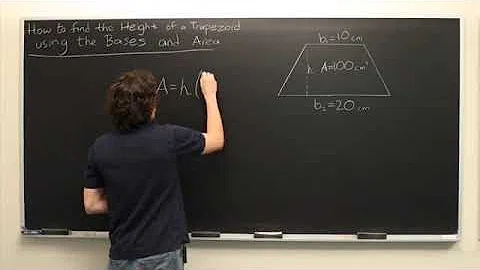 How to find the Height of a Trapezoid
using the Bases and Area
A=h(
b₁=10cm
h A=100cm²
b₂=20cm